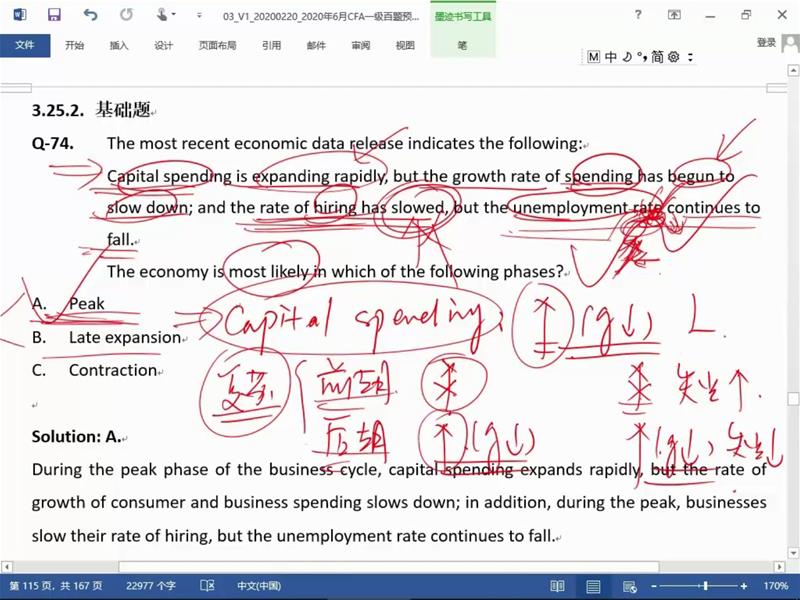 03_V1_20200220_2020年6月CFA一级百题预...
墨迹书写工具
文件 开始 插入 设计 页面布局 引用 邮件 审阅 视图 笔 登录
M 中 简
3.25.2. 基础题
Q-74. The most recent economic data release indicates the following:
Capital spending is expanding rapidly, but the growth rate of spending has begun to
slow down; and the rate of hiring has slowed, but the unemployment rate continues to
fall.
The economy is most likely in which of the following phases?
A. Peak
B. Late expansion
C. Contraction
Capital spending: ↑ (g↓) L
复苏 前期 失业↑.
后期 ↑(g↓) ↑(g↓) 失业↓
Solution: A.
During the peak phase of the business cycle, capital spending expands rapidly, but the rate of
growth of consumer and business spending slows down; in addition, during the peak, businesses
slow their rate of hiring, but the unemployment rate continues to fall.
第 115 页，共 167 页 22977 个字 中文(中国) 170%